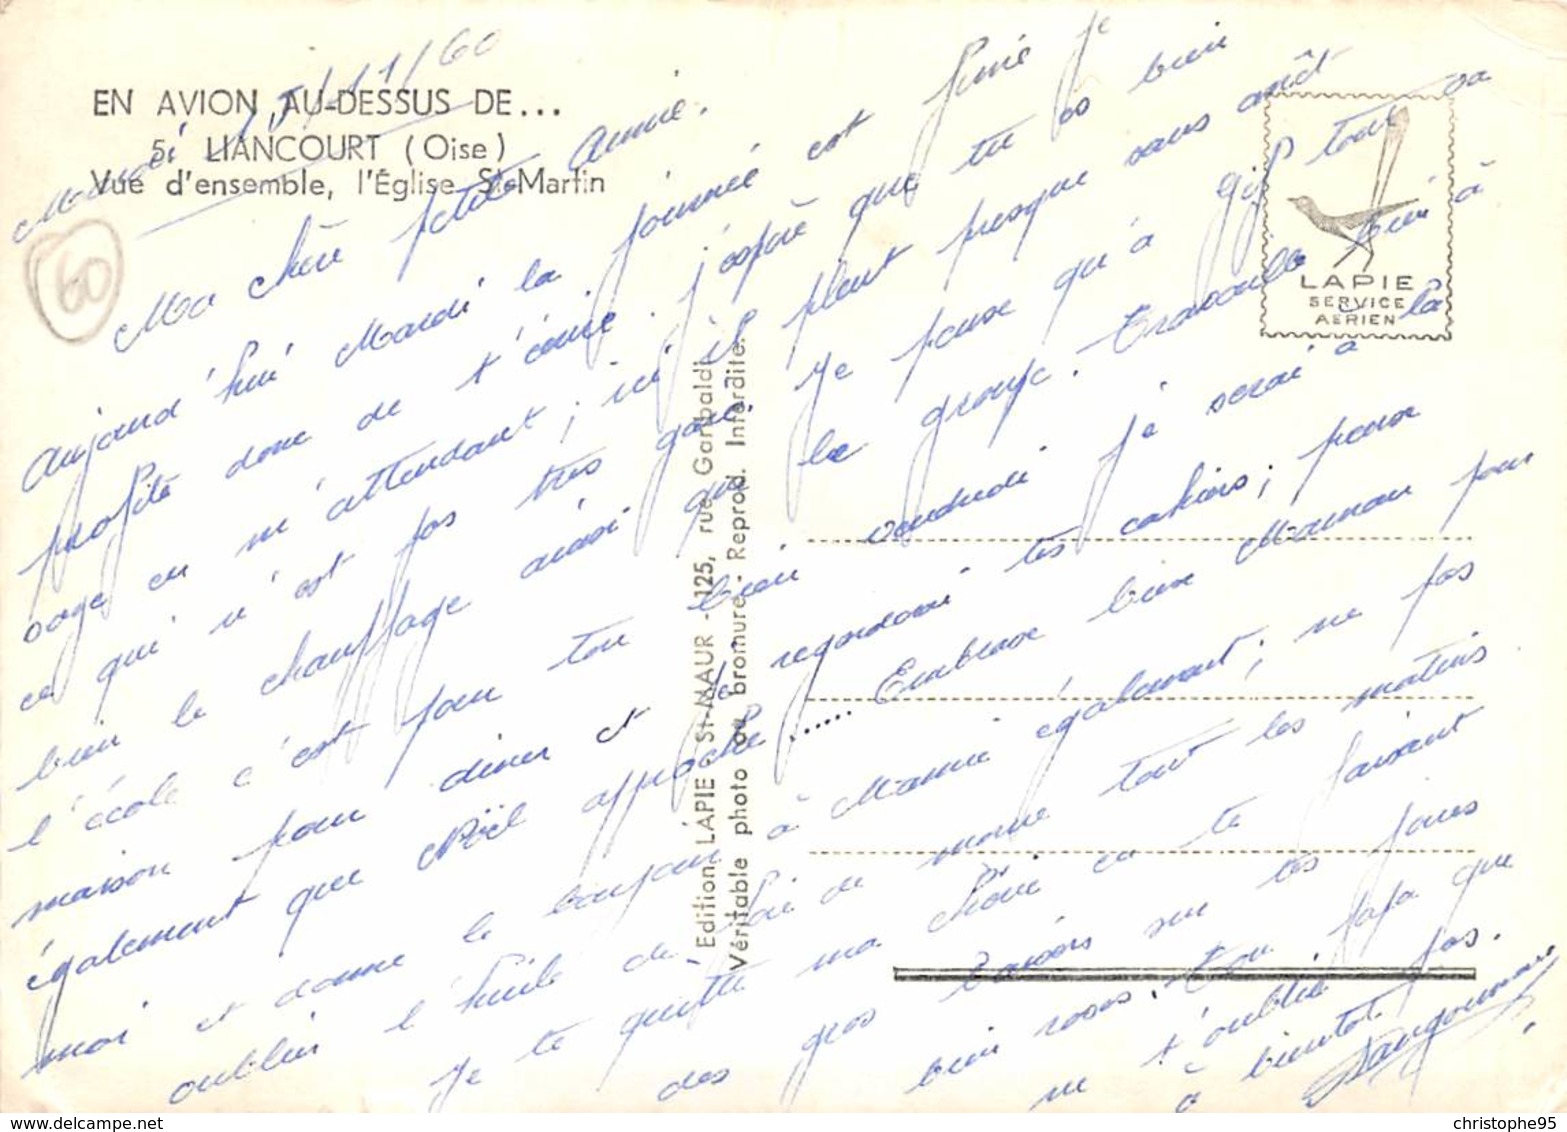 Mardi 15/11/60
EN AVION AU-DESSUS DE...
5. LIANCOURT (Oise)
Vue d'ensemble, l'Église St-Martin
60
Ma chère petite Annie.
Aujourd'hui Mardi la journée est finie je
profite donc de t'écrire. j'espère que tu es bien
sage en m'attendant; ici il pleut presque sans arrêt
ce qui n'est pas très gai. Je pense qu'à tout va
bien le chauffage ainsi que le groupe. Travaille bien à
l'école c'est pour ton bien vendredi je serai à la
maison pour diner et je regarderai tes cahiers; pense
également que Noël approche...... Embrasse bien Maman pour
moi et donne le bonjour à Mamie également; ne pas
oublier l'huile de foie de morue tout les matins
Je te quitte ma Chérie en te faisant
des gros baisers sur tes joues
bien roses. Ton papa que
ne t'oublie pas.
à bientot.
LAPIE
SERVICE
AERIEN
- Edition LAPIE St-MAUR - 125, rue Garibaldi -
Véritable photo au bromure - Reprod. Interdite.
christophe95